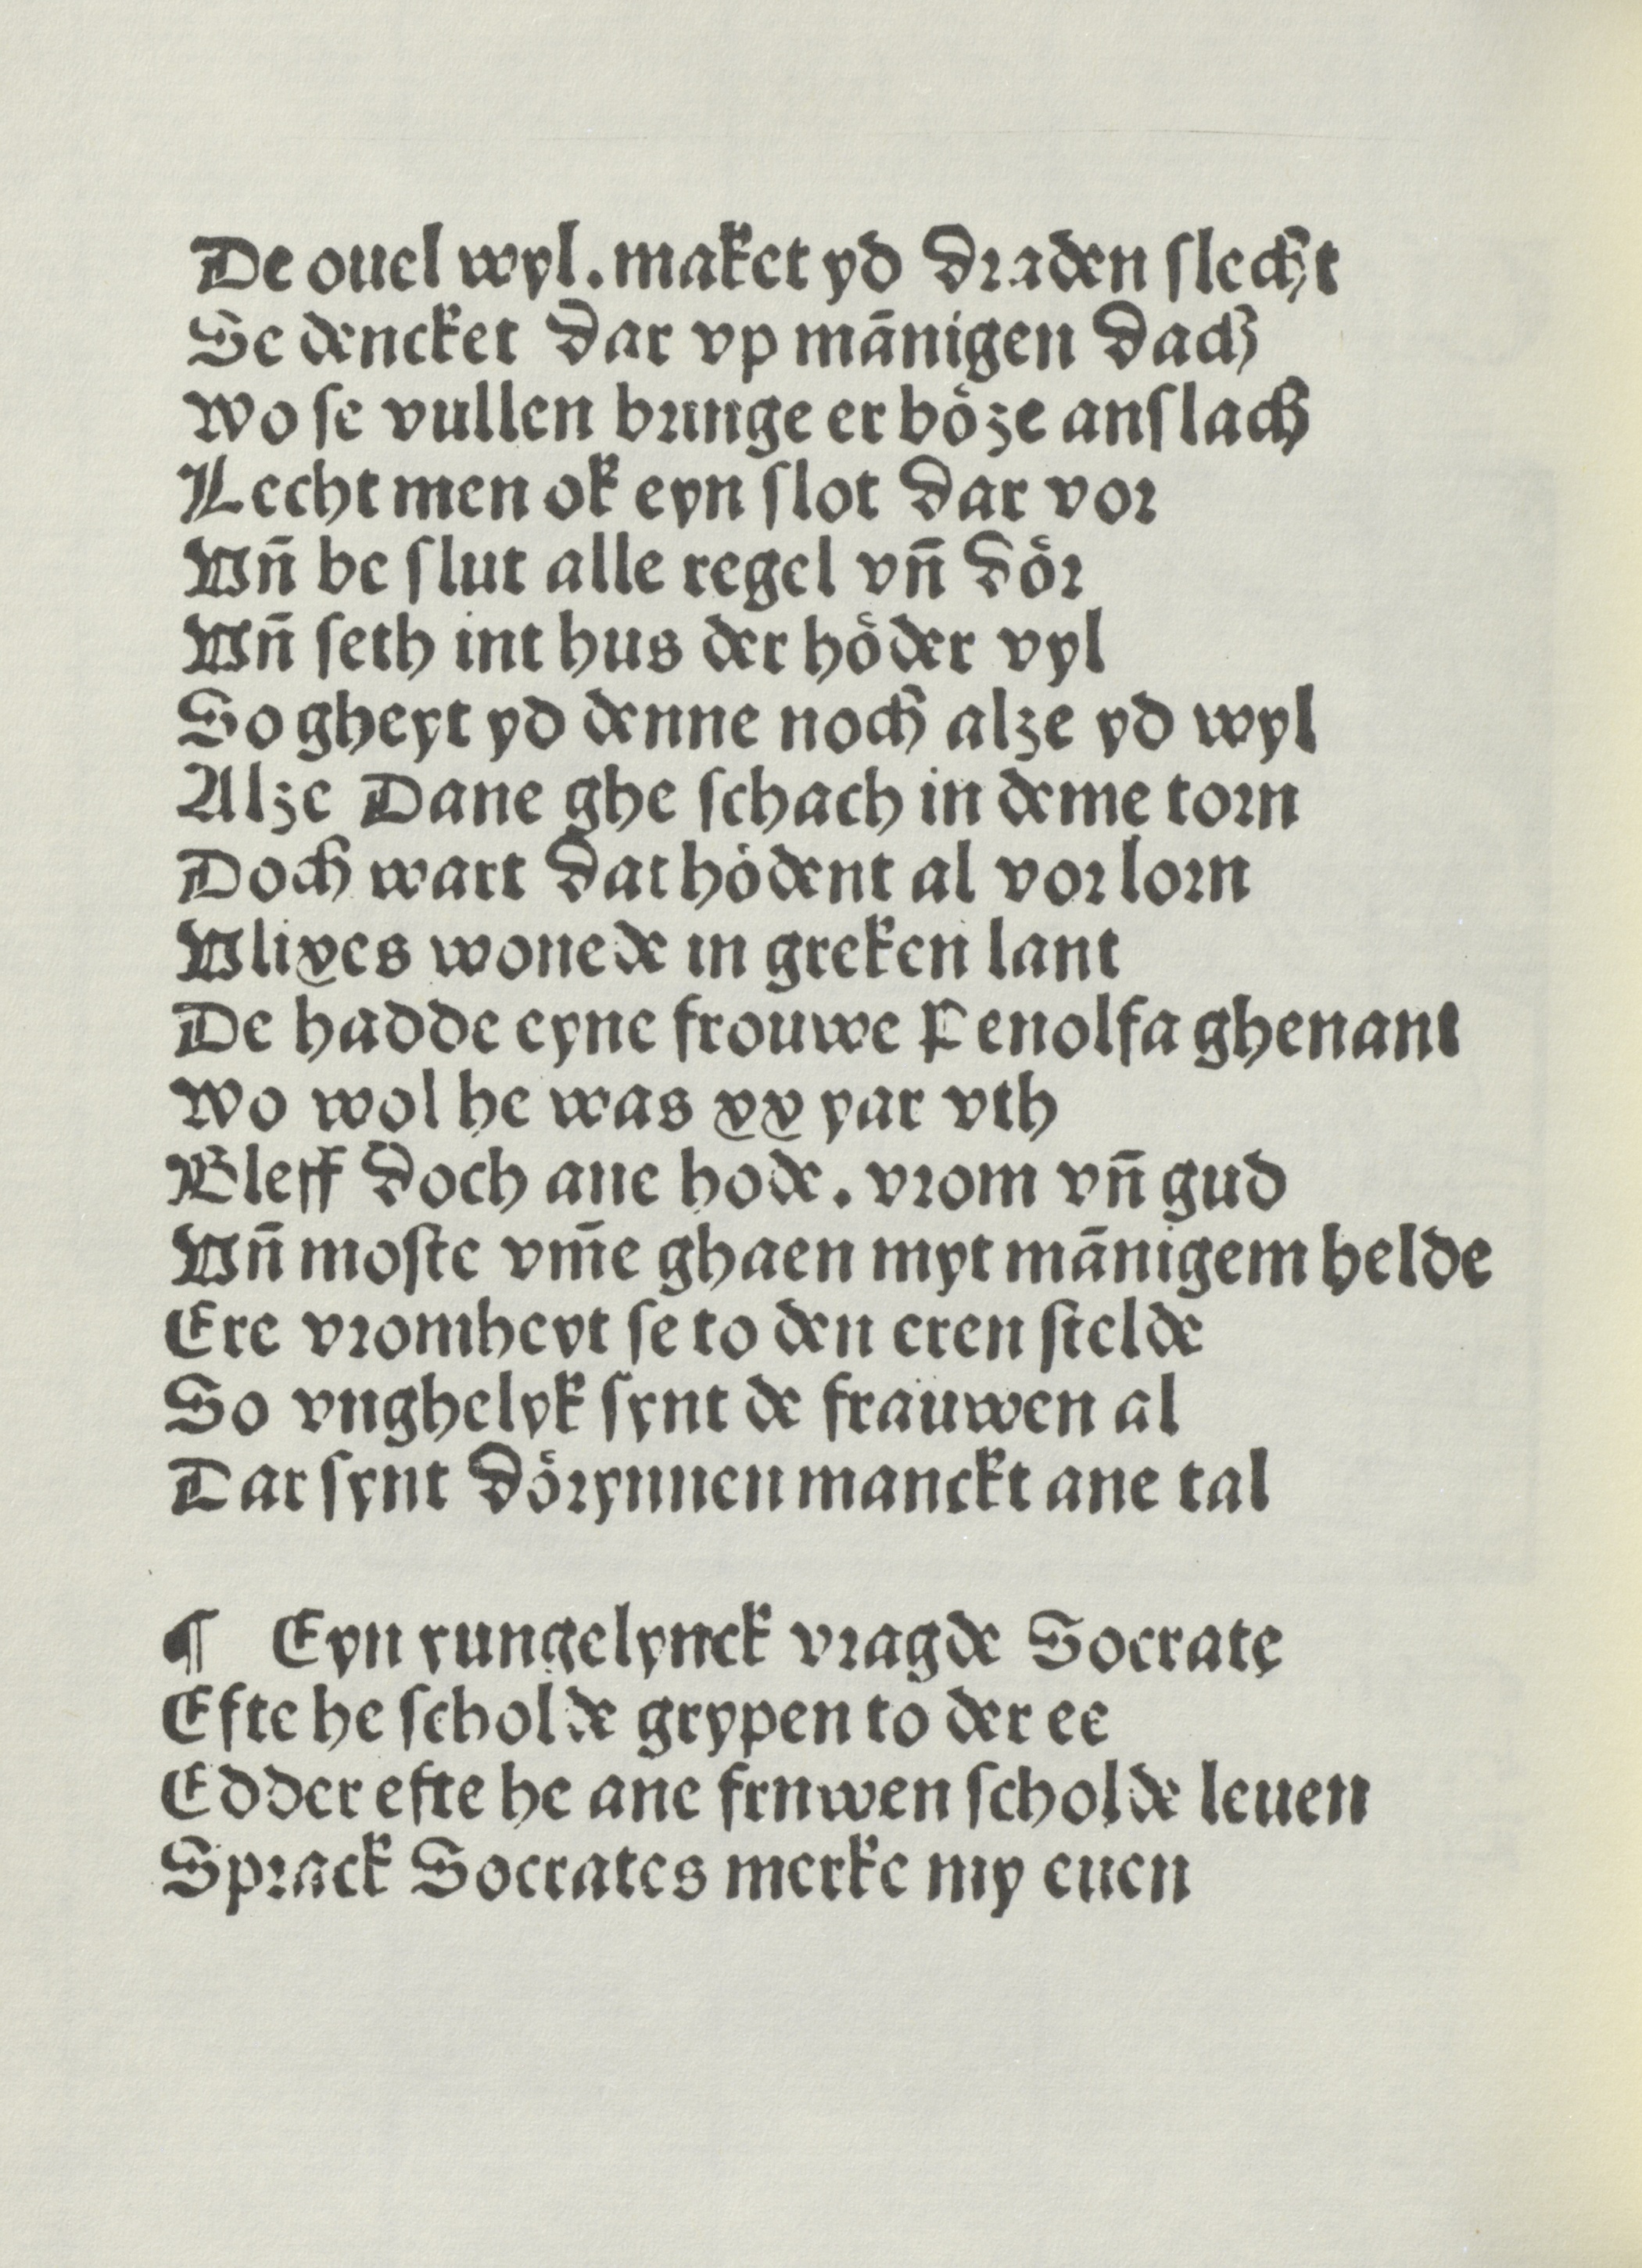 De ouel wyl. maket yd draden slecht
Se dencket dar vp mānigen dach
Wo se vullen brynge er bȫze anslach
Lecht men ok eyn slot dar vor
Vn̄ be slut alle regel vn̄ döꝛ
Vn̄ seth int hus der höder vyl
So gheyt yd denne noch alze yd wyl
Alze Dane ghe schach in deme torn
Doch wart dat hödent al vor lorn
Vlixes wonede in greken lant
De hadde eyne frouwe Penolfa ghenant
Wo wol he was xx yar vth
Bleff doch ane hode. vrom vn̄ gud
Vn̄ moste vm̄e ghaen myt mānigem helde
Ere vromheyt se to den eren stelde
So vnghelyk synt de frauwen al
Dar synt dörynnen manckt ane tal
¶ Eyn yungelynck vragde Socrate
Efte he scholde grypen to der ee
Edder efte he ane frnwen scholde leuen
Sprack Socrates merke my euen